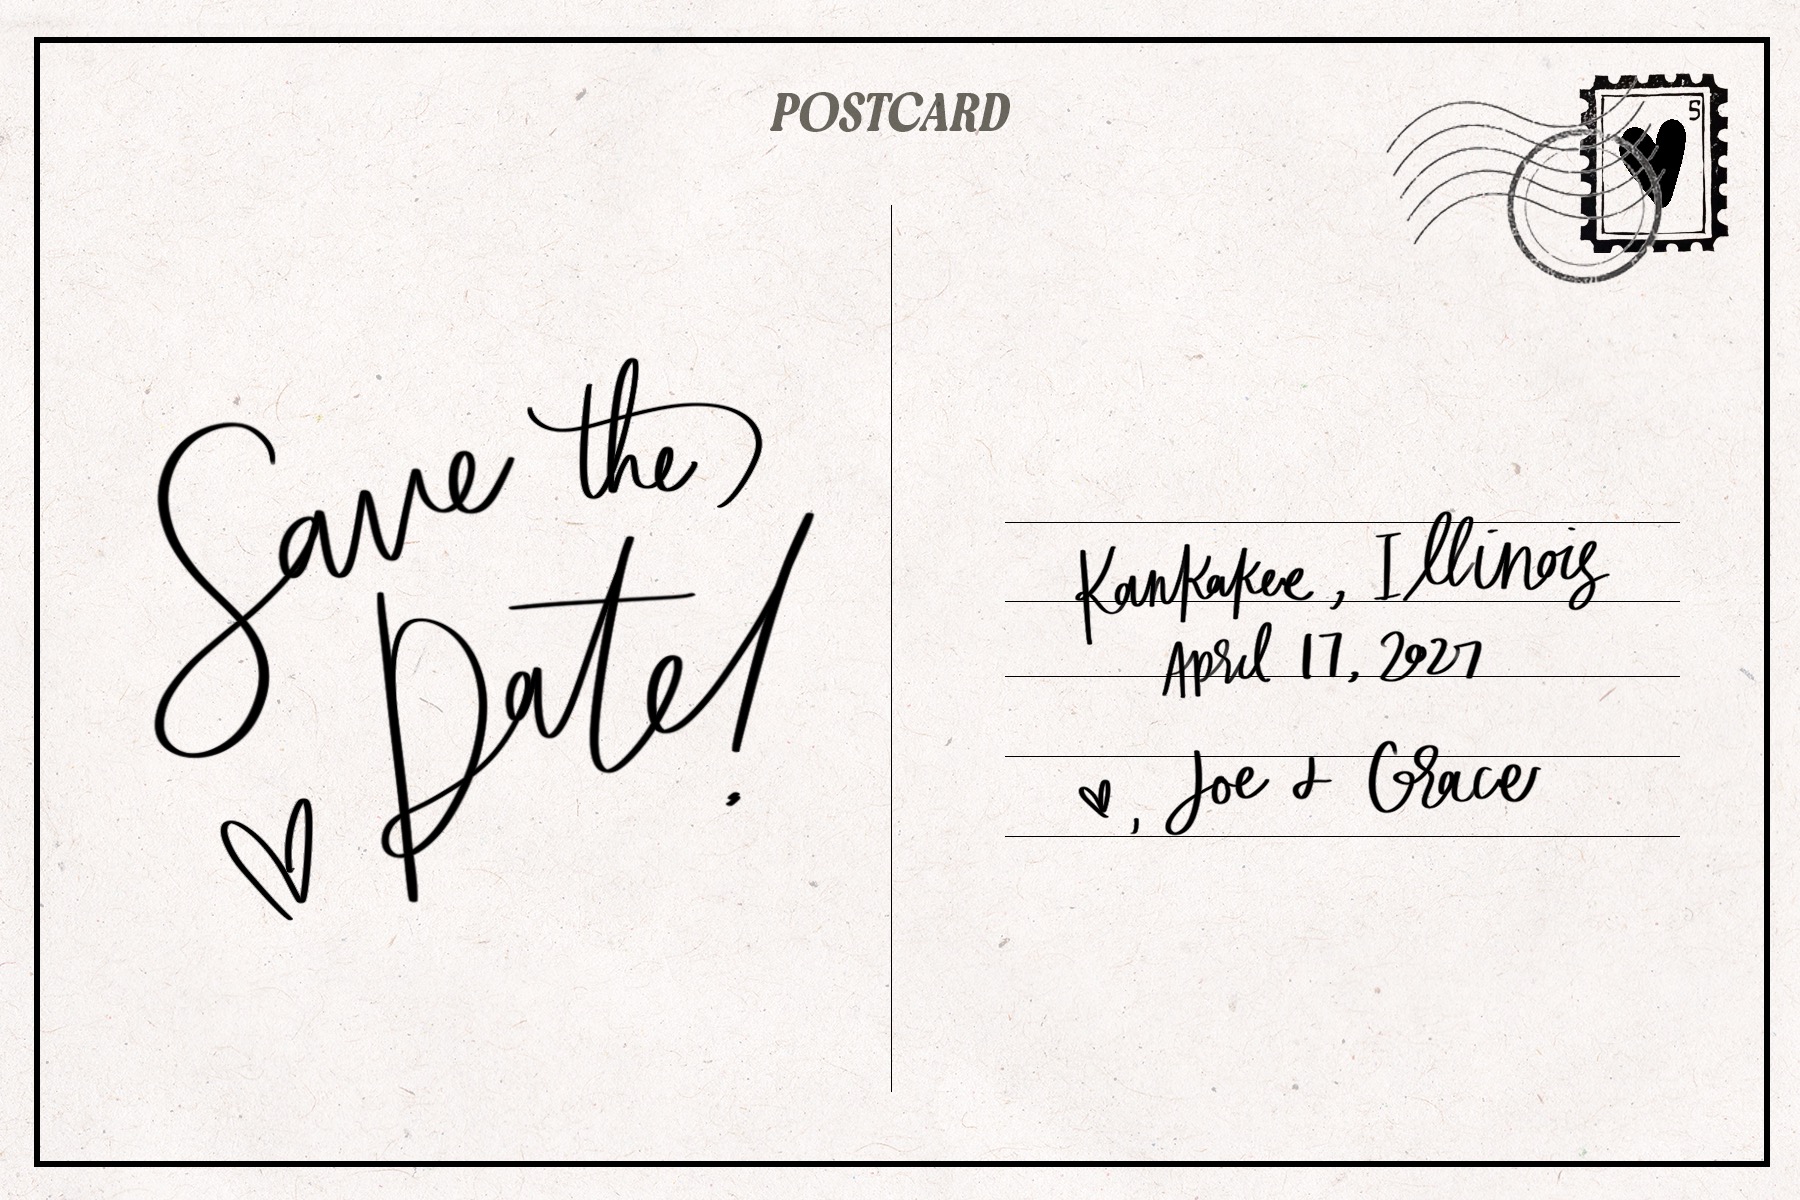 POSTCARD
5
Save the
Date!
Kankakee, Illinois
April 17, 2027
♡, Joe & Grace